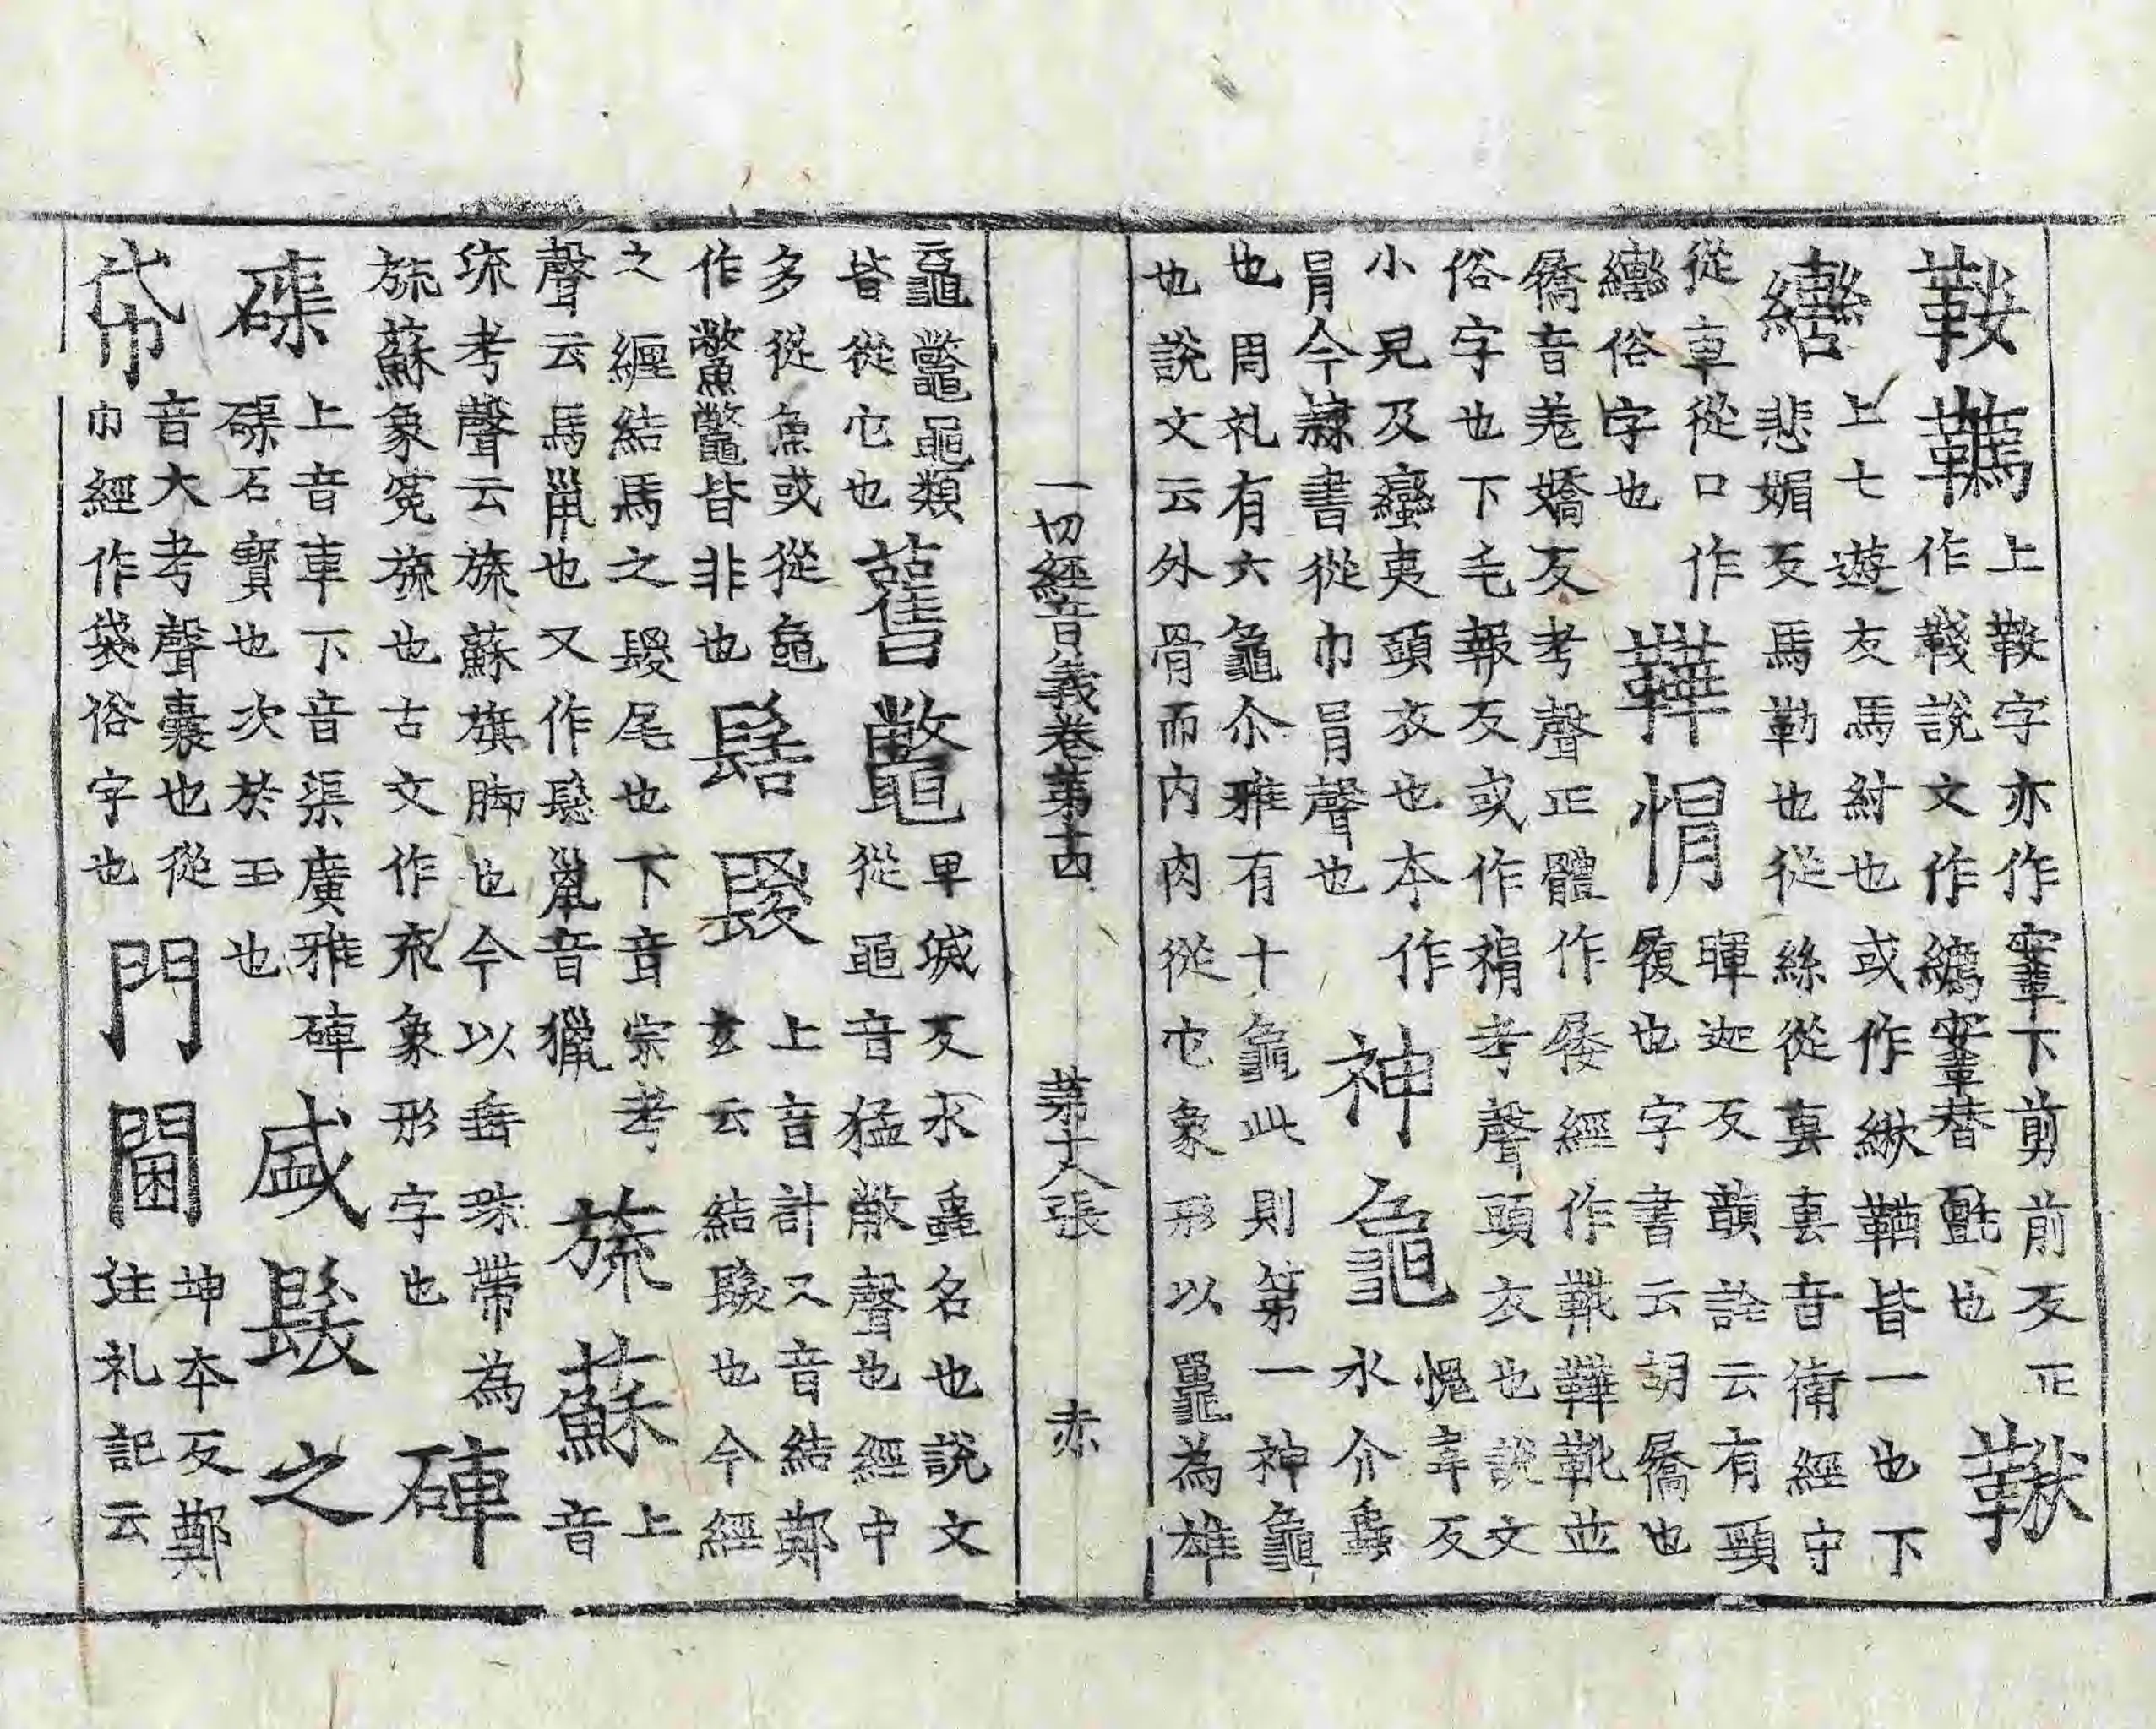 鞍韉上鞍字亦作鞌下剪前反正
作韉說文作韉鞌替氈也鞦
轡上七遊反馬紂也或作緧鞧皆一也下
悲媚反馬勒也從絲從𠧪𠧪音衛經守
從車從口作轡俗字也
鞾帽暉迦反韻詮云有頸
履也字書云胡屩也
屩音羌嬌反考聲正體作屩經作鞾靴並
俗字也下毛報反或作𢂿考聲頭衣也說文
小兒及蠻夷頭衣也本作冃今隸書從巾冃聲也
神龜愧韋反水介蟲
也周礼有六龜尒雅有十龜此則第一神龜
也說文云外骨而內肉從它象形以黽為雄
一切經音義卷第十四 第十八張 赤
云龜鼈黽類皆從它也
舊鼈卑滅反水蟲名也說文
從黽音猛敝聲也經中
多從魚或從龜作鱉鼈皆非也
髻騣上音計又音結鄭
玄云結髮也今經
之纏結馬之騣尾也下音宗考
聲云馬鬣也又作鬆鬣音獵
旒蘇上音
流考聲云旒蘇旗脚也今以垂珠帶為
旒蘇象冕旒也古文作㐬象形字也
硨磲上音車下音渠廣雅硨
磲石寶也次於玉也
盛髮之帒音大考聲囊也從
巾經作袋俗字也
門閫坤本反鄭
注礼記云